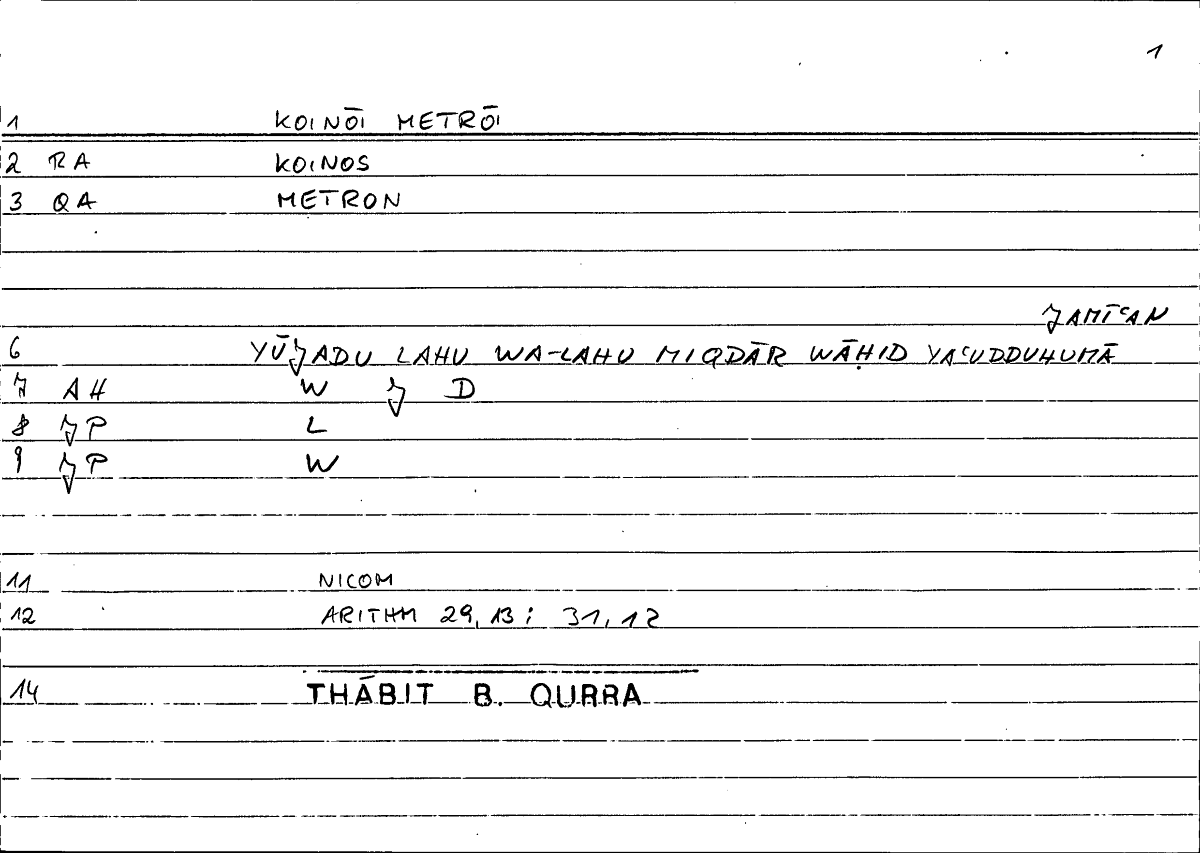 1
1 KOINŌI METRŌI
2 RA KOINOS
3 QA METRON
JAMĪʿAN
6 YŪJADU LAHU WA-LAHU MIQDĀR WĀḤID YAʿUDDUHUMĀ
7 AH W J D
8 JP L
9 JP W
11 NICOM
12 ARITHM 29,13; 31,12
14 THĀBIT B. QURRA